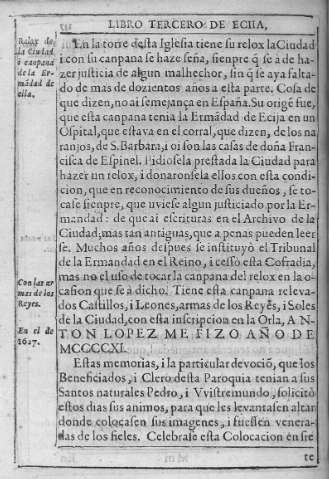 LIBRO TERCERO DE ECIIA,
Relox de
la Ciudad
i canpana
de la Er-
mãdad de
ella.
En la torre desta Iglesia tiene su relox la Ciudad
i con su canpana se haze seña, sienpre q̃ se à de ha-
zer justicia de algun malhechor, sin q̃ se aya falta-
do de mas de dozientos años a esta parte. Cosa de
que dizen, no ai semejança en España. Su origẽ fue,
que esta canpana tenia la Ermãdad de Ecija en un
Ospital, que estava en el corral, que dizen, de los na
ranjos, de S. Barbara, i oi son las casas de doña Fran-
cisca de Espinel. Pidiosela prestada la Ciudad para
hazer un relox, i donaronsela ellos con esta condi-
cion, que en reconocimiento de sus dueños, se to-
case sienpre, que uviese algun justiciado por la Er-
mandad: de que ai escrituras en el Archivo de la
Ciudad, mas tan antiguas, que a penas pueden leer
se. Muchos años despues se instituyò el Tribunal
de la Ermandad en el Reino, i cessò esta Cofradia,
mas no el uso de tocar la canpana del relox en la o-
casion que se à dicho. Tiene esta canpana releva-
dos Castillos, i Leones, armas de los Reyes, i Soles
de la Ciudad, con esta inscripcion en la Orla, AN-
TON LOPEZ ME FIZO AÑO DE
MCCCCXI.
Con las ar
mas de los
Reyes.
En el de
1627.
Estas memorias, i la particular devociõ, que los
Beneficiados, i Clero desta Paroquia tenian a sus
Santos naturales Pedro, i Vvistremundo, solicitò
estos dias sus animos, para que les levantasen altar
donde colocasen sus imagenes, i fuessen venera-
das de los fieles. Celebrase esta Colocacion en sie
te